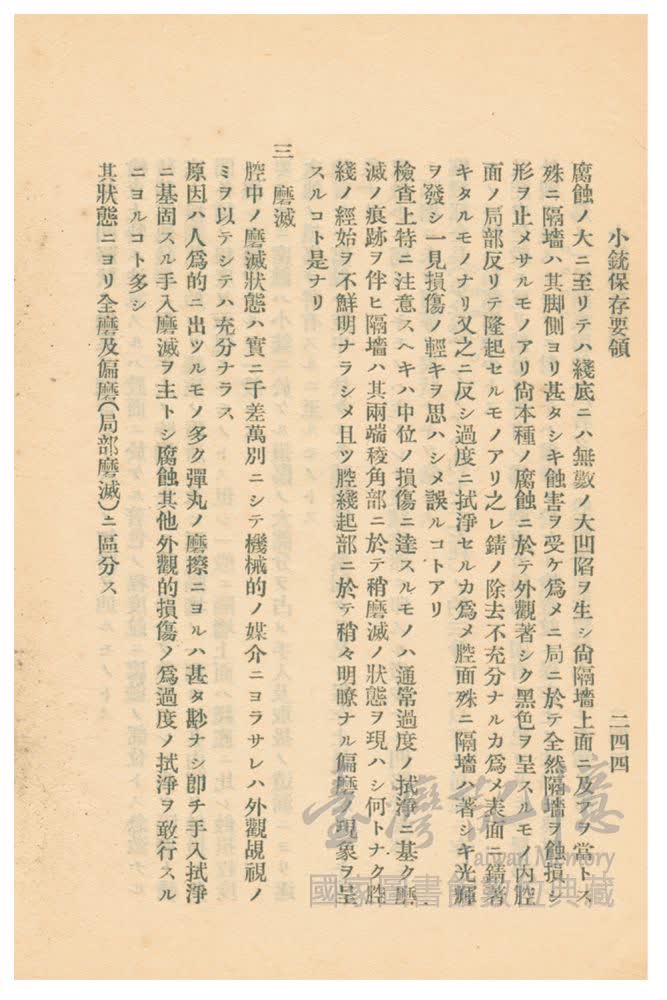 小銃保存要領
二四四
腐蝕ノ大ニ至リテハ綫底ニハ無數ノ大凹陷ヲ生シ尙隔墻上面ニ及フヲ當トス
殊ニ隔墻ハ其脚側ヨリ甚タシキ蝕害ヲ受ケ爲メニ局ニ於テ全然隔墻ヲ蝕損シ
形ヲ止メサルモノアリ尙本種ノ腐蝕ニ於テ外觀著シク黑色ヲ呈スルモノ内腔
面ノ局部反リテ隆起セルモノアリ之レ錆ノ除去不充分ナルカ爲メ表面ニ錆著
キタルモノナリ又之ニ反シ過度ニ拭淨セルカ爲メ腔面殊ニ隔墻ハ著シキ光輝
ヲ發シ一見損傷ノ輕キヲ思ハシメ誤ルコトアリ
檢查上特ニ注意スヘキハ中位ノ損傷ニ達スルモノハ通常過度ノ拭淨ニ基ク磨
滅ノ痕跡ヲ伴ヒ隔墻ハ其兩端稜角部ニ於テ稍磨滅ノ狀態ヲ現ハシ何トナク腔
綫ノ經始ヲ不鮮明ナラシメ且ツ腔綫起部ニ於テ稍々明瞭ナル偏磨ノ現象ヲ呈
スルコト是ナリ
三 磨滅
腔中ノ磨滅狀態ハ實ニ千差萬別ニシテ機械的ノ媒介ニヨラサレハ外觀覘視ノ
ミヲ以テシテハ充分ナラス
原因ハ人爲的ニ出ツルモノ多ク彈丸ノ磨擦ニヨルハ甚タ尠ナシ卽チ手入拭淨
ニ基因スル手入磨滅ヲ主トシ腐蝕其他外觀的損傷ノ爲過度ノ拭淨ヲ敢行スル
ニヨルコト多シ
其狀態ニヨリ全磨及偏磨(局部磨滅)ニ區分ス
臺灣記憶
Taiwan Memory
國家圖書館數位典藏